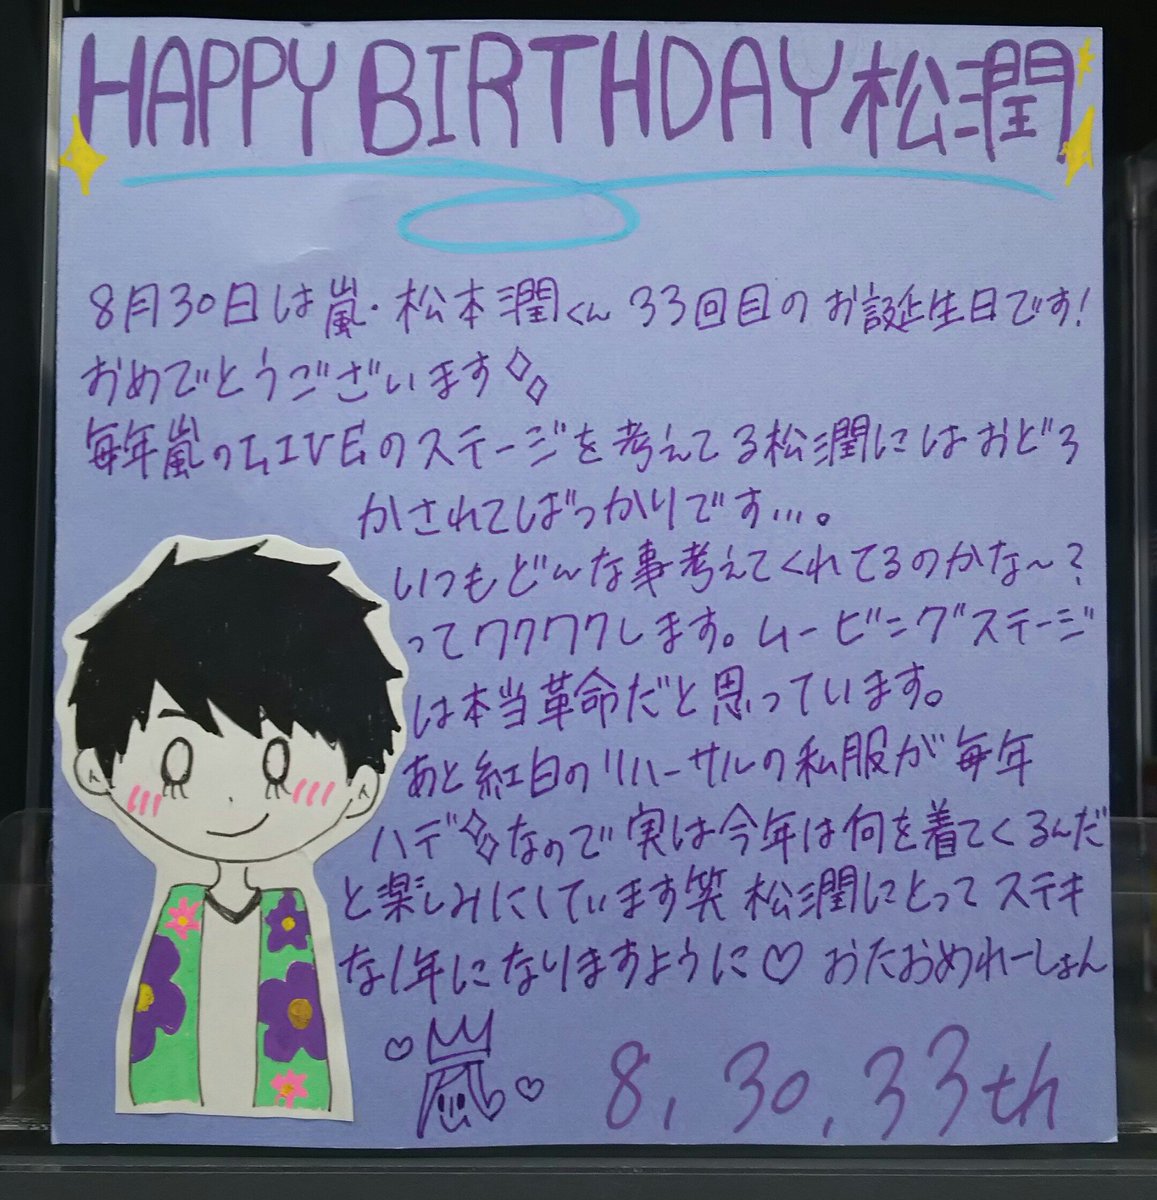 HAPPY BIRTHDAY 松潤
8月30日は嵐・松本潤くん33回目のお誕生日です!
おめでとうございます
毎年嵐のLIVEのステージを考えてる松潤にはおどろ
かされてばっかりです…。
いつもどんな事考えてくれてるのかな〜?
ってワクワクします。ムービングステージ
は本当革命だと思っています。
あと紅白のリハーサルの私服が毎年
ハデなので実は今年は何を着てくるんだ
と楽しみにしています笑 松潤にとってステキ
な1年になりますように♡ おたおめれーしょん
嵐
8, 30, 33th